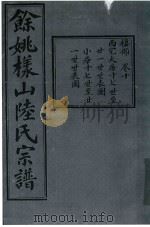 卷十
西宅大房十八世至
廿一世世表圖
小房十七世至廿
一世世表圖
餘姚樣山陸氏宗譜